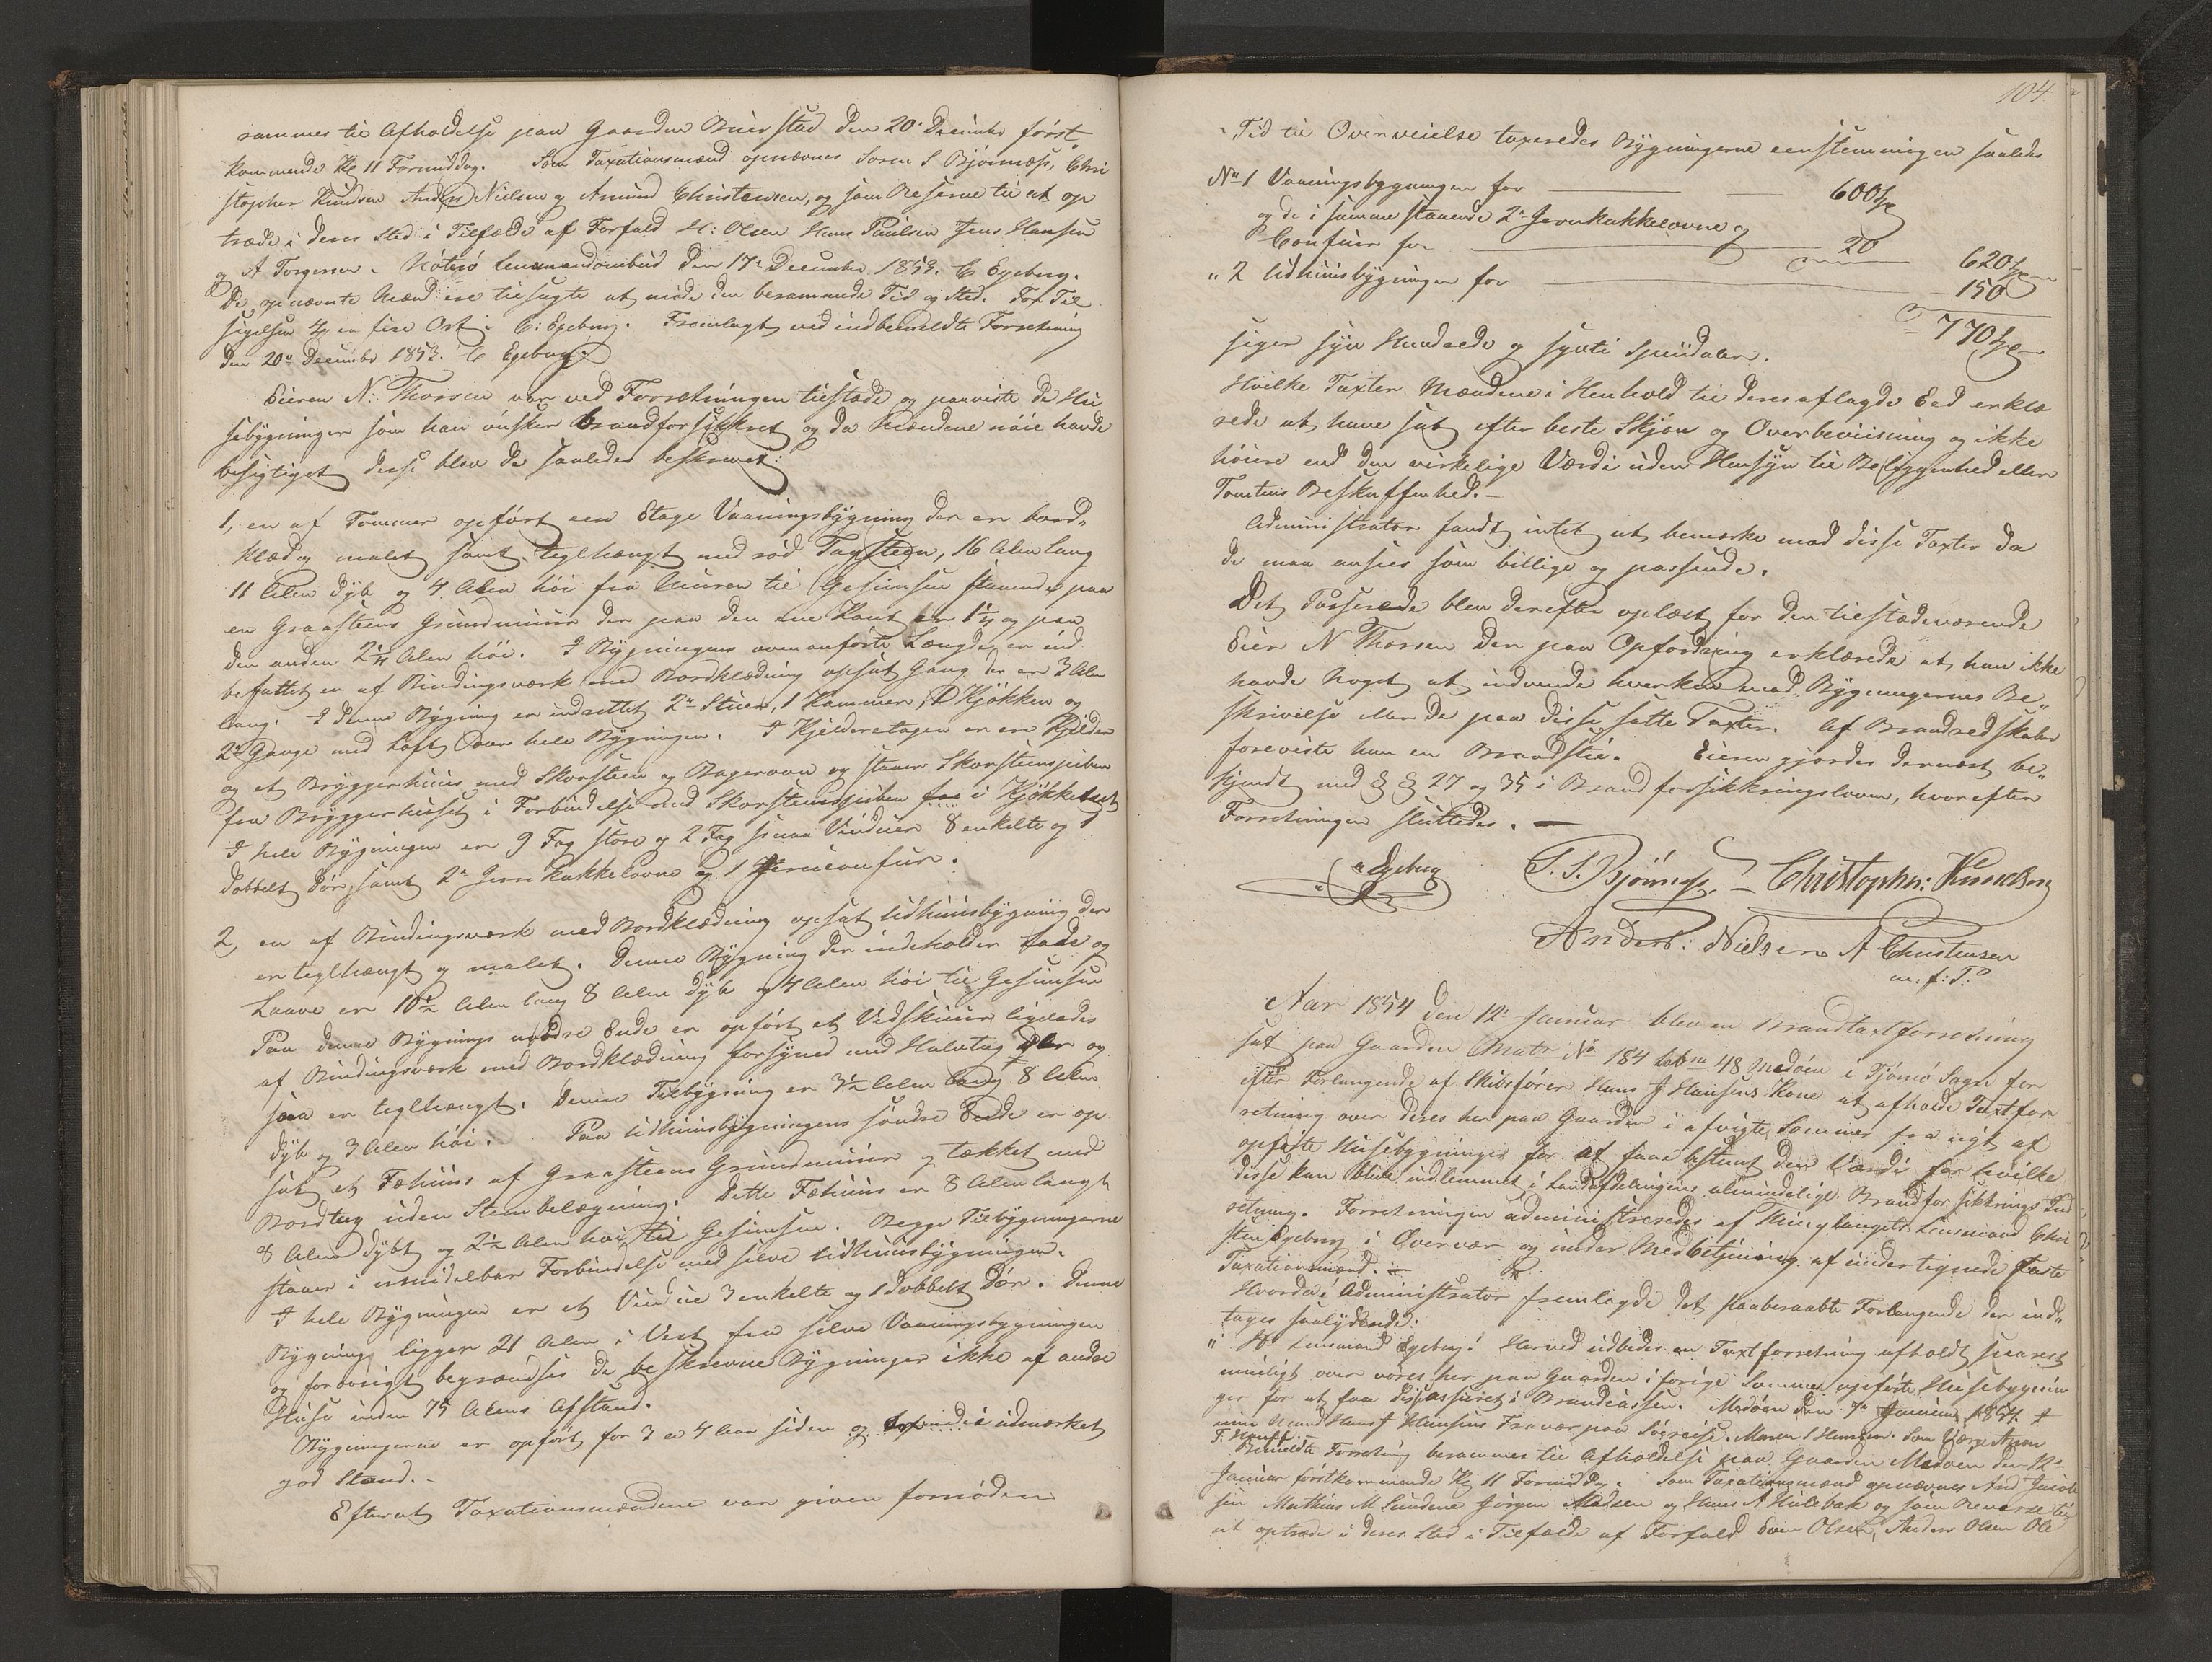 rammes til Afholdelse paa Gaarden Buerstad den 20de December først
kommende Kl 11 Formiddag. Som Taxationsmænd opnævnes Soren S Bjørnæss, Chri
stopher Knudsen Anders Nielsen og Amund Christensen, og som Reserve til at op
træde i deres Sted i Tilfælde af Forfald H: Olsen Hans Paulsen Jens Hansen
og A Torgersen. Nøtterø Lensmandombud den 17de December 1853. C Egeberg.
De opnævnte Mænd ere tilsagte at møde den berammede Tid og Sted. For Til
sigelsen 4 er fire Ort. C: Egeberg. Fremlagt ved indbemeldte Forretning
den 20de December 1853. C Egeberg
Eieren N: Thorsen var ved Forretningen tilstæde og paaviste de Hu
sebygninger som han ønsker brandforsikkret og da Mændene nøie havde
besigtiget disse blev de saaledes beskrevet:
1, en af Tømmer opført een Etage Vaaningsbygning der er bord-
klæd og malet samt teglhængt med rød Tagsteen, 16 Alen lang
11 Alen dyb og 4 Alen høi fra Muren til Gesimsen staaende paa
en Graasteens Grundmuur der paa den ene Kant er 1¼ og paa
den anden 2¼ Alen høi. I Bygningens ovenanførte Længde er ind
befattet en af Bindingsværk med Bordklædning opsat Gang der er 3 Alen
lang. I denne Bygning er indrettet 2de Stuer, 1 Kammer, 1 Kjøkken og
2de Gange med Loft over hele Bygningen. I Kjelderetagen er en Kjelder
og et Bryggerhuus med Skorsteen og Bagerovn og staaer Skorsteenspiben
fra Bryggerhuset i Forbindelse med Skorsteenspiben fra i Kjøkkenet
I hele Bygningen er 9 Fag store og 2 Fag smaa Vinduer 8 enkelte og 1
dobbelt Dør, samt 2de Jernkakkelovne og 1 Jerncomfur.
2, en af Bindingsværk med Bordklædning opsat Udhuusbygning der
er teglhængt og malet. Denne Bygning der indeholder Lade og
Laave er 10½ Alen lang 8 Alen dyb og 4 Alen høi til Gesimsen
Paa denne Bygnings nordre Ende er opført et Vedskuur ligeledes
af Bindingsværk med Bordklædning forsyned med Halvtag der og
saa er teglhængt. Denne Tilbygning er 3½ Alen lang 8 Alen
dyb og 3 Alen høi. Paa Udhuusbygningens søndre Ende er op
sat et Fæhuus af Graasteens Grundmuur og tækket med
Bordtag uden Steenbelægning. Dette Fæhuus er 8 Alen langt
8 Alen dybt og 2½ Alen høi til Gesimsen. Begge Tilbygningerne
staaer i umiddelbar Forbindelse med selve Udhuusbygningen.
I hele Bygningen er et Vindue 3 enkelte og 1 dobbelt Dør. Denne
Bygning ligger 21 Alen i Vest fra selve Vaaningsbygningen
og forøvrigt begrændses de beskrevne Bygninger ikke af andre
Huse inden 75 Alens Afstand.
Bygningerne er opført for 3 a 4 Aar siden og befindes i udmærket
god Stand.
Efterat Taxationsmændene var given fornøden
104
Tid til Overveielse taxeredes Bygningerne eenstemmigen saaledes
No 1 Vaaningsbygningen for 600
og de i samme staaende 2de Jernkakkelovne og
Comfuur for 20 620
" 2 Udhuusbygningen for 150
770
siger syv Hundrede og sytti Speciedaler.
Hvilke Taxter Mændene i Henhold til deres aflagde Eed erklæ
rede at have sat efter beste Skjøn og Overbeviisning og ikke
høiere end den virkelige Værdi uden Hensyn til Beliggenhed eller
Tomtens Beskaffenhed.
Administrator fandt intet at bemærke mod disse Taxter da
de maa ansees som billige og passende.
Det Passerede blev derefter oplæst for den tilstædeværende
Eier N Thorsen der paa Opfordring erklærede at han ikke
havde Noget at indvende hverken mod Bygningernes Be-
skrivelse eller de paa disse satte Taxter. Af Brandredskaber
foreviste han en Brandstie. Eieren gjordes dernæst be-
kjendt med § § 27 og 35 i Brandforsikkringsloven, hvorefter
Forretningen sluttedes.
C Egeberg S. S. Bjørnæss. Christopher: Knudsen
Anders: Nielsen A Christensen
m. f: P:
Aar 1854 den 12te Januar blev en Brandtaxtforretning
sat paa Gaarden Matr No 184 Lobno 48 Medøen i Tjømø Sogn for
efter Forlangende af Skibsfører Hans J Hansens Kone at afholde Taxtfor
retning over deres her paa Gaarden i afvigte Sommer fra nyt af
opførte Husebygninger for at faae bestemt den Værdi for hvilke
disse kan blive indlemmet i Landafdelingens almindelige Brandforsikkrings Ind
retning. Forretningen administreredes af Thinglaugets Lensmand Chri
sten Egeberg i Overvær og under Medbetjening af undertegnede faste
Taxationsmænd.
Hvorda Administrator fremlagde det paaberaabte Forlangende der ind-
tages saalydende:
" Hr Lensmand Egeberg! Herved udbedes en Taxtforretning afholdt snarest
muligt over vores her paa Gaarden i forrige Sommer opførte Husebygnin
ger for at faae disse assureret i Brandcassen. Medøen den 7de Januar 1854. I
min Mand Hans J Hansens Fravær paa Søreise. Maren S Hansen. Som Værge Aron
T. Hansen.
Bemeldte Forretning berammes til Afholdelse paa Gaarden Medøen den 12te
Januar førstkommende Kl 11 Formiddag. Som Taxationsmænd opnævnes And Jacob
sen Mathias M Sundene Jørgen Madsen og Hans A Hulebak og som Reserve til
at optræde i deres Sted i Tilfælde af Forfald Even Olsen, Anders Olsen Ole